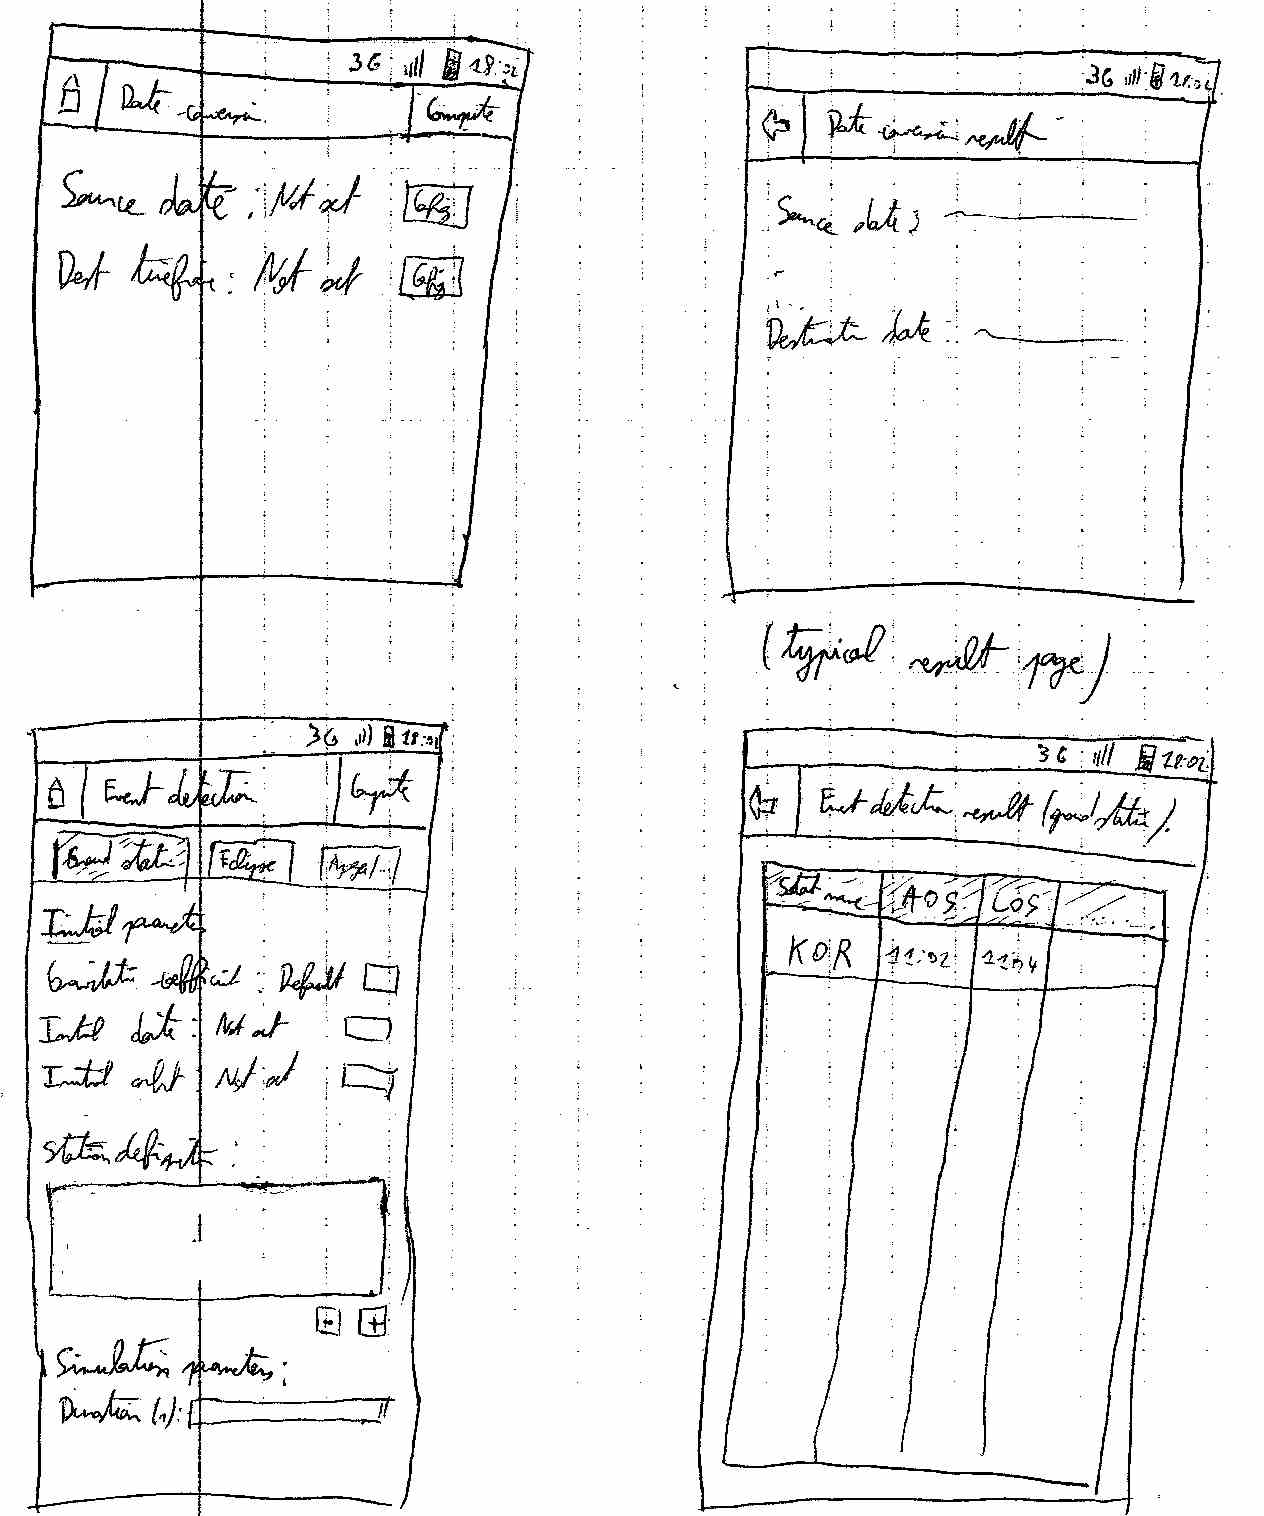 3G 18:02
Date conversion
Compute
Source date : Not set Cfg
Dest timeframe : Not set Cfg
3G 18:02
Date conversion result
Source date :
Destination date :
(typical result page)
3G 18:02
Event detection
Compute
Ground station
Eclipse
Initial parameters
Gravitation coefficient : Default
Initial date : Not set
Initial orbit : Not set
Station definition :
- +
Simulation parameters :
Duration (s):
3G 18:02
Event detection result (ground station).
Station name AOS LOS
KOR 11:02 11:04